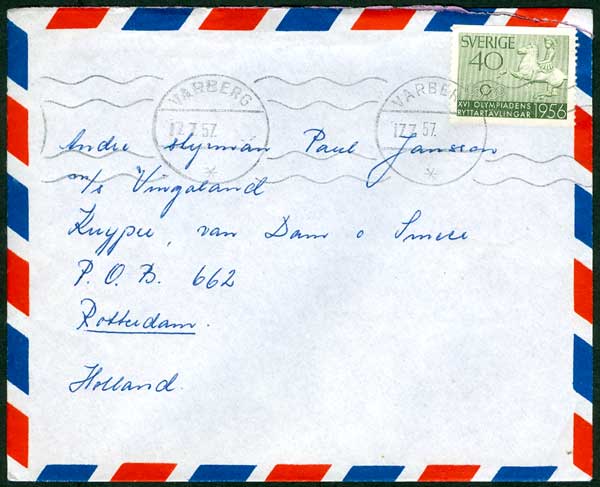 SVERIGE
40
XVI OLYMPIADENS
RYTTARTÄVLINGAR 1956
VARBERG
17.7.57.
VARBERG
17.7.57.
Andre styrman Paul Jansson
m/s Vingaland
Kuyper, van Dam o Smeer
P.O.B. 662
Rotterdam.
Holland.